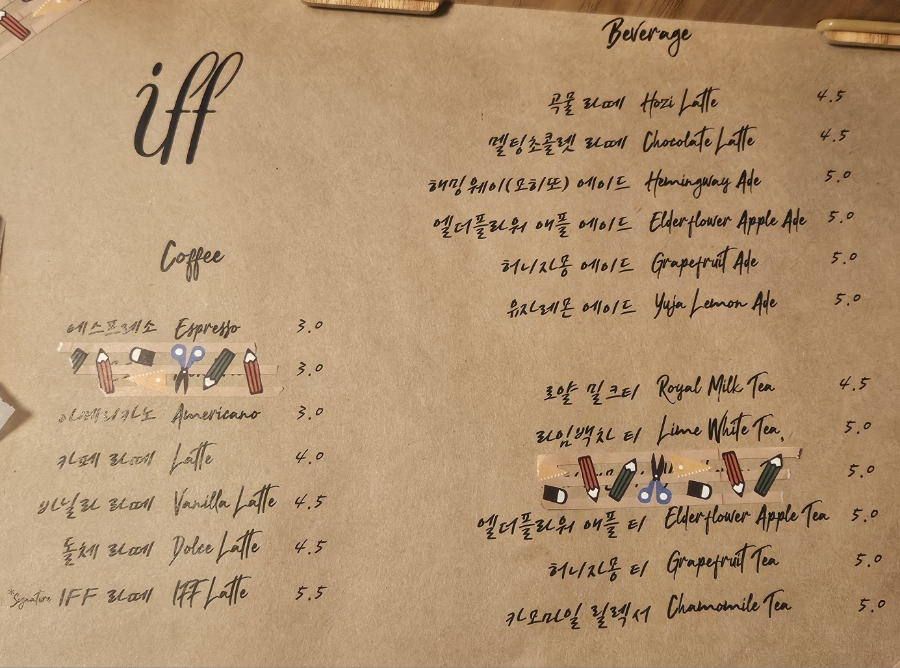 iff
Coffee
에스프레소 Espresso 3.0
3.0
아메리카노 Americano 3.0
카페 라떼 Latte 4.0
바닐라 라떼 Vanilla Latte 4.5
돌체 라떼 Dolce Latte 4.5
*Signature IFF 라떼 IFF Latte 5.5
Beverage
곡물 라떼 Hozi Latte 4.5
멜팅초콜렛 라떼 Chocolate Latte 4.5
헤밍웨이(모히또) 에이드 Hemingway Ade 5.0
엘더플라워 애플 에이드 Elderflower Apple Ade 5.0
허니자몽 에이드 Grapefruit Ade 5.0
유자레몬 에이드 Yuja Lemon Ade 5.0
로얄 밀크티 Royal Milk Tea 4.5
라임백차 티 Lime White Tea, 5.0
5.0
엘더플라워 애플 티 Elderflower Apple Tea 5.0
허니자몽 티 Grapefruit Tea 5.0
카모마일 릴렉서 Chamomile Tea 5.0